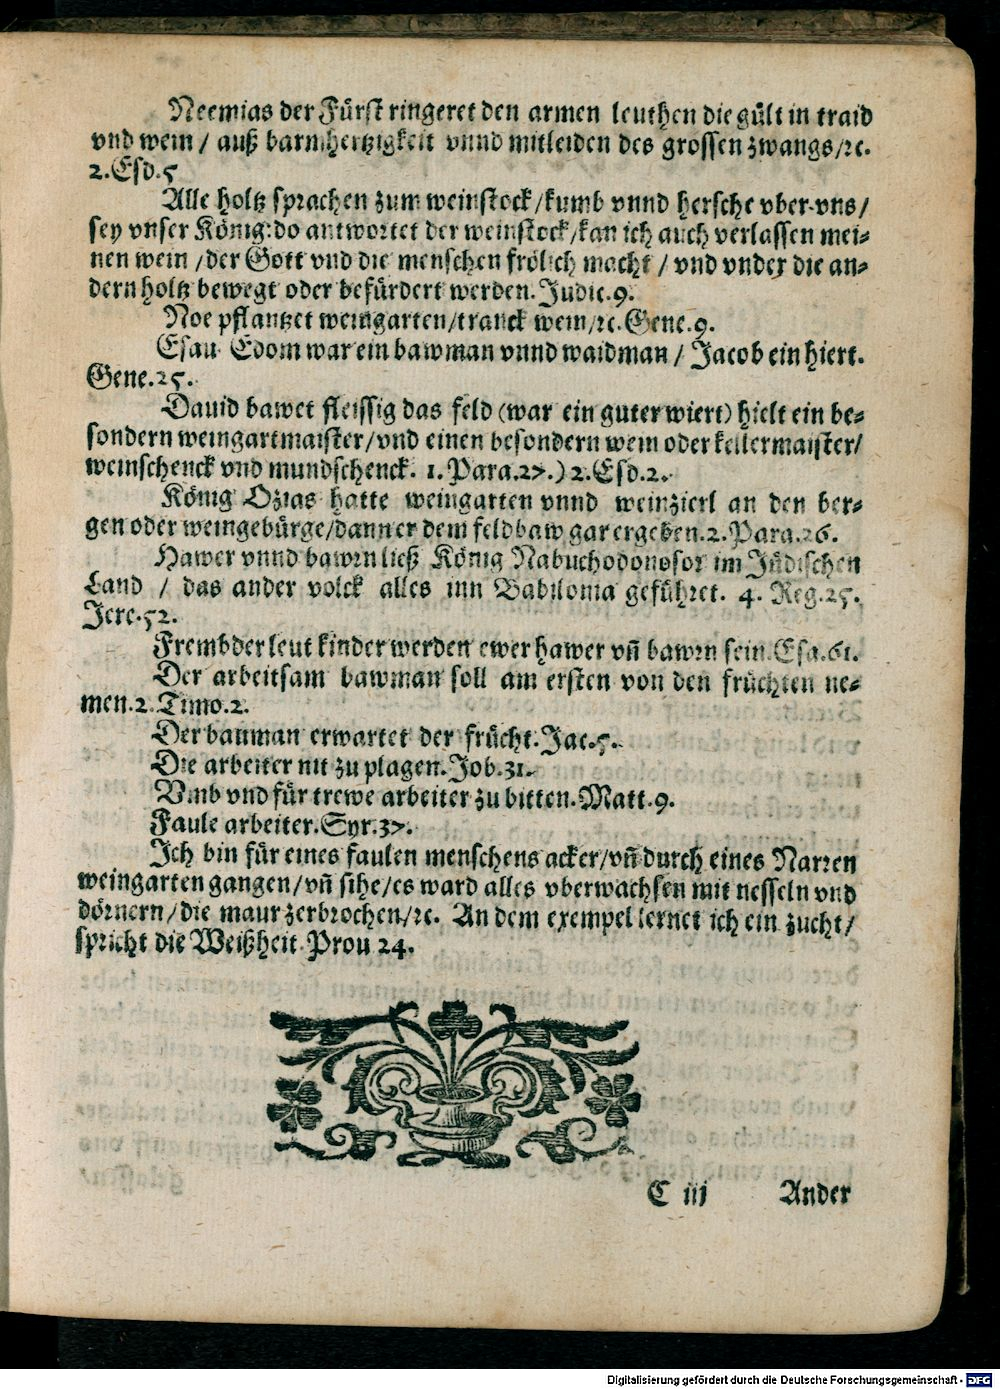 Neemias der Fürst ringeret den armen leuthen die gült in traid
vnd wein / auß barmhertzigkeit vnnd mitleiden des grossen zwangs/ꝛc.
2.Esd.5
Alle holtz sprachen zum weinstock/kumb vnnd hersche vber vns/
sey vnser König:do antwortet der weinstock/kan ich auch verlassen mei-
nen wein /der Gott vnd die menschen frölich macht / vnd vnder die an-
dern holtz bewegt oder befürdert werden.Judic.9.
Noe pflantzet weingarten/tranck wein/ꝛc.Gene.9.
Esau Edom war ein bawman vnnd waidman / Jacob ein hiert.
Gene.25.
Dauid bawet fleissig das feld (war ein guter wiert) hielt ein be-
sondern weingartmaister/vnd einen besondern wein oder kellermaister/
weinschenck vnd mundschenck. 1.Para.27.) 2.Esd.2.
König Ozias hatte weingarten vnnd weinzierl an den ber-
gen oder weingebürge/dann er dem feldbaw gar ergeben.2.Para.26.
Hawer vnnd bawrn ließ König Nabuchodonosor im Jüdischen
Land / das ander volck alles inn Babilonia geführet. 4. Reg.25.
Jere.52.
Frembder leut kinder werden ewer hawer vñ bawrn sein.Esa.61.
Der arbeitsam bawman soll am ersten von den früchten ne-
men.2.Timo.2.
Der bauman erwartet der frücht.Jac.5.
Die arbeiter nit zu plagen.Job.31.
Vmb vnd für trewe arbeiter zu bitten.Matt.9.
Faule arbeiter.Syr.37.
Ich bin für eines faulen menschens acker/vñ durch eines Narren
weingarten gangen/vñ sihe/es ward alles vberwachsen mit nesseln vnd
dörnern/die maur zerbrochen/ꝛc. An dem exempel lernet ich ein zucht/
spricht die Weißheit.Prou 24.
C iij Ander
Digitalisierung gefördert durch die Deutsche Forschungsgemeinschaft - DFG